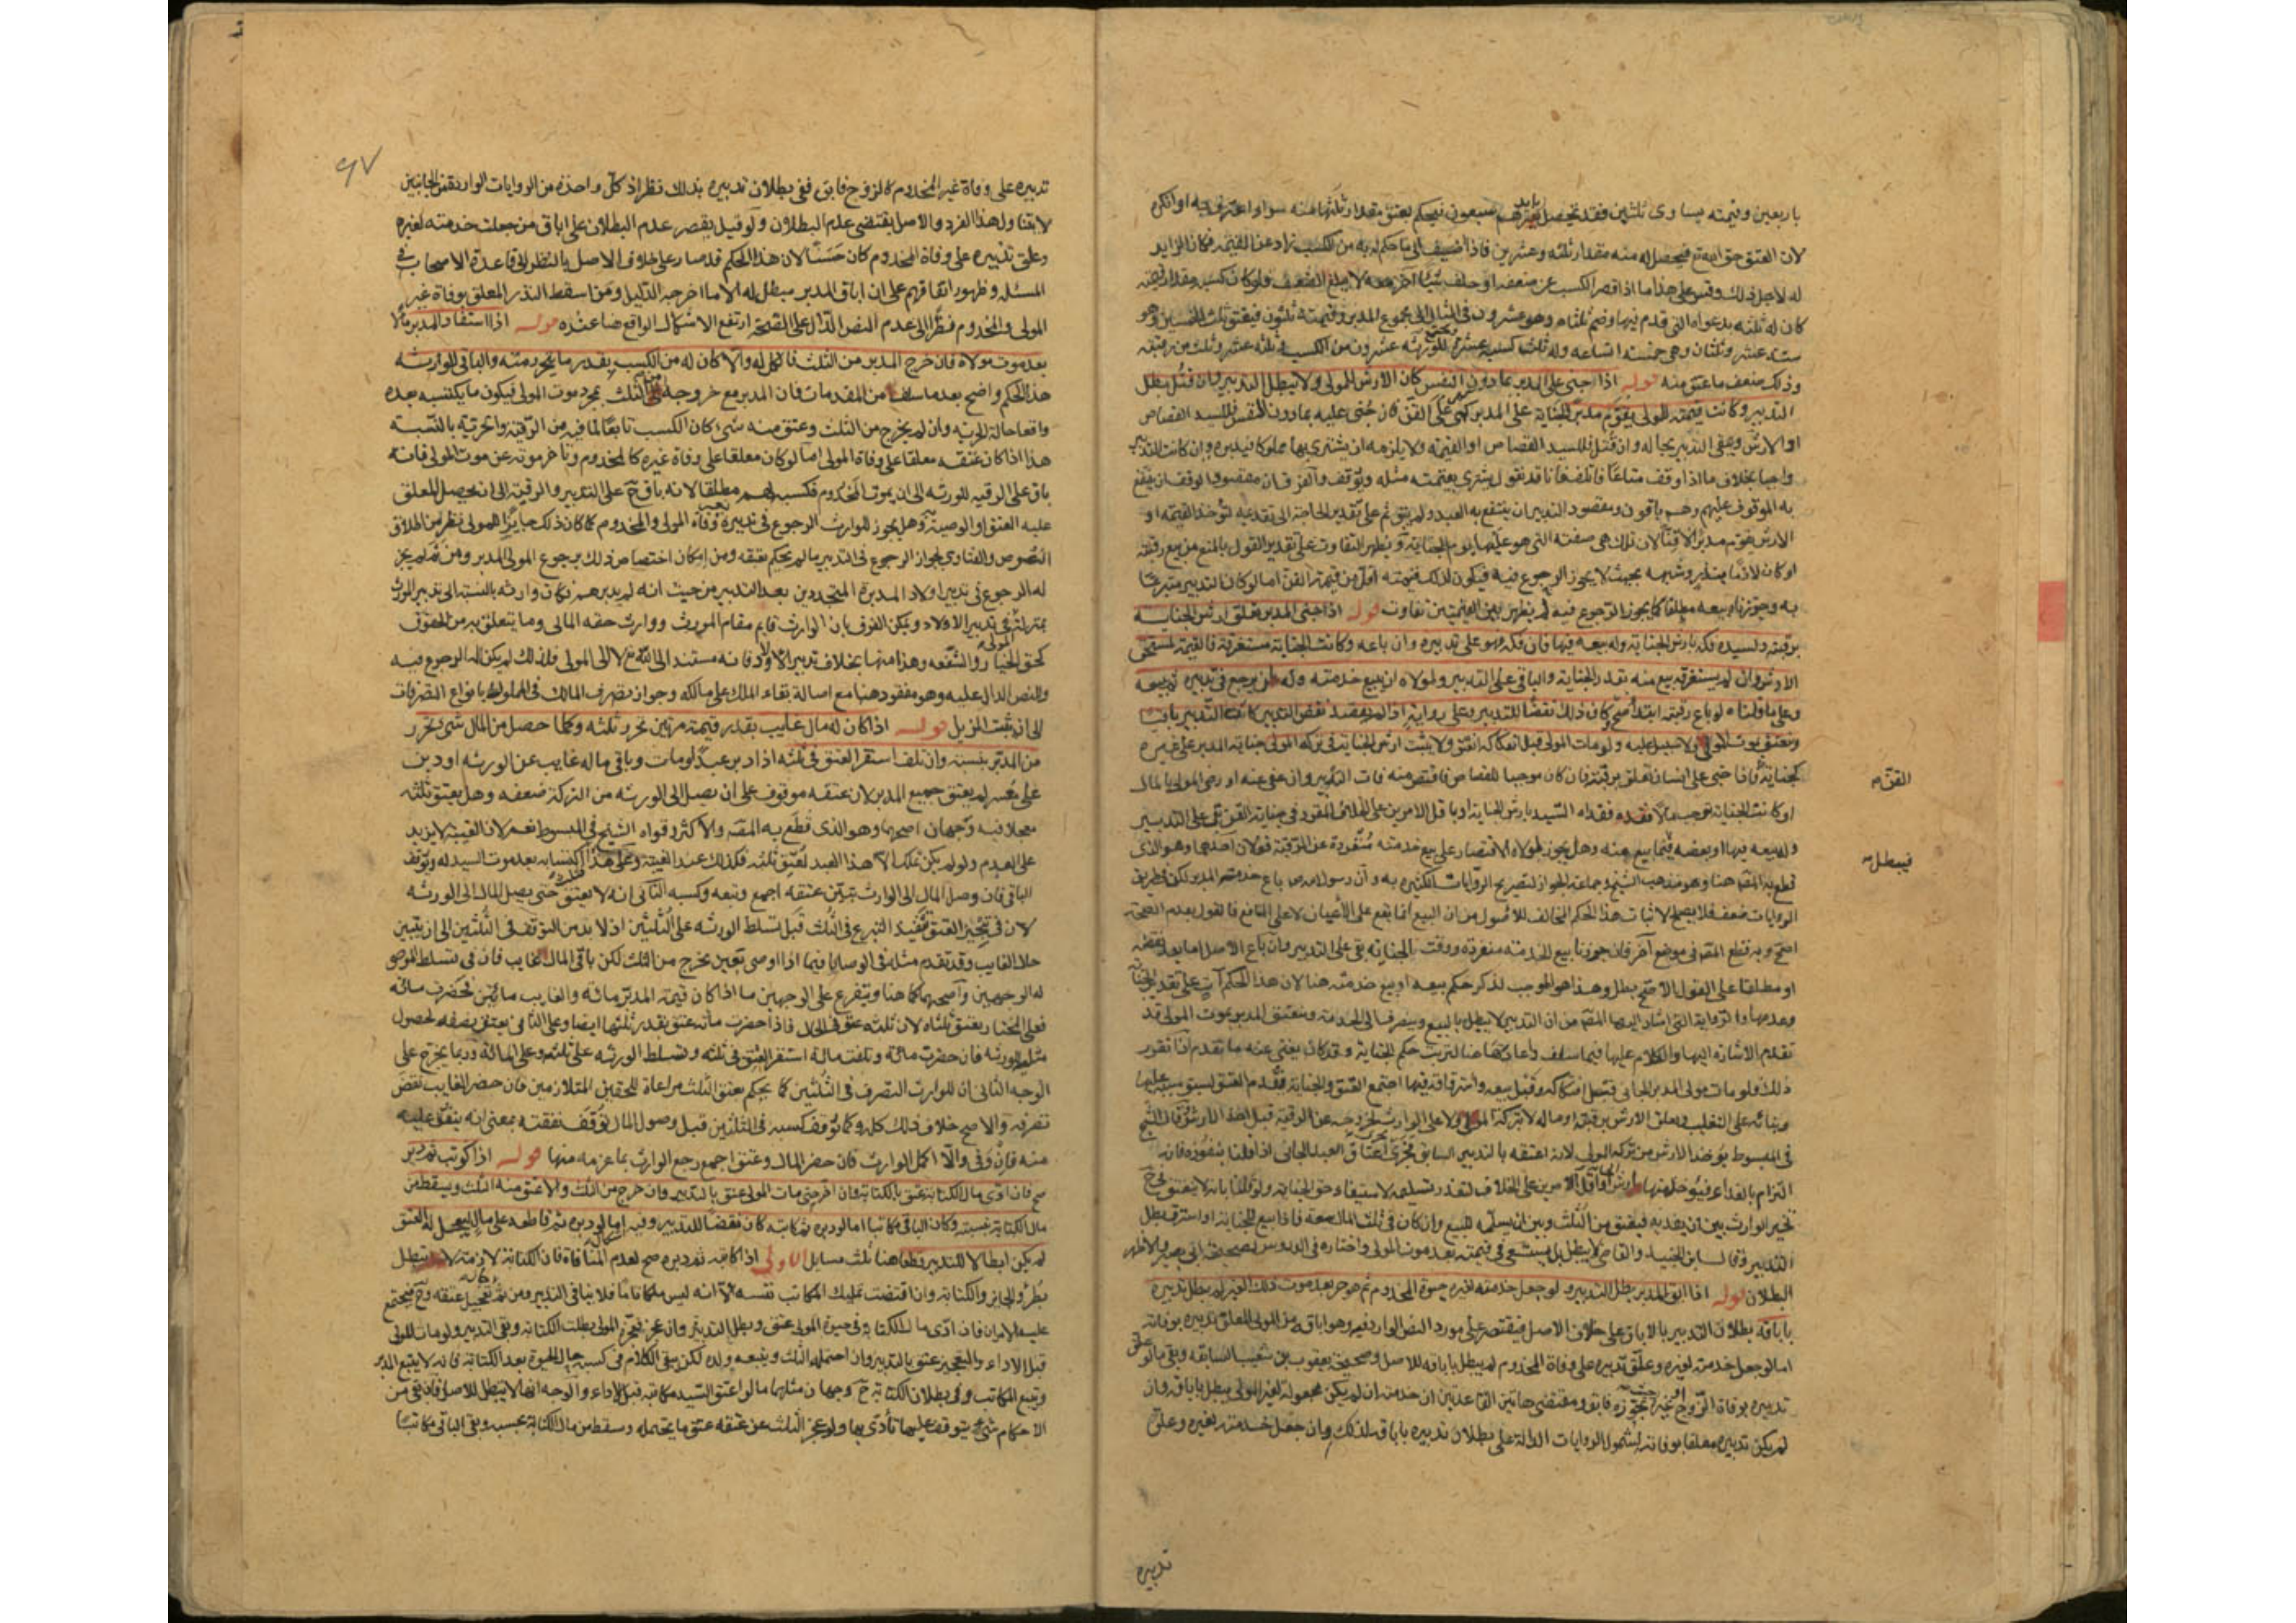 باربعين وقيمته يساوي ثلثين فقد تحصل سبعون فيحكم بعتق مقدار ثلثها منه سواء اعترف به او انكره
لان العتق حق الله تع فيحصل له منه مقدار ثلثه وعشرين فاذا اضيف الى ما حكم له به من الكسب زاد عن القيمة فكان الزايد
له لاجل ذلك وقس على هذا ما اذا قصر الكسب عن ضعفه او خلف شيئا اخر معه لا يبلغ الضعف ولو كان كسبه مقدار قيمته
كان له ثلثه بدعواه التي قدم فيها وضم ثلثاه وهو عشرون في المثال الى مجموع المدبر وقيمته ثلثون فيعتق ثلث الخمسين وهو
ستة عشر وثلثان وهي خمسة اتساعه وله ثلث كسبه عشرة للورثه عشرون من الكسب وثلثه عشر وثلث من رقبته
وذلك ضعف ما عتق منه قوله اذا جنى على المدبر بما دون النفس كان الارش للمولى ولا يبطل التدبير وان قتل بطل
التدبير وكانت قيمته للمولى يقوم مدبرا الجناية على المدبر كهي على القن فان جني عليه بما دون النفس فللسيد القصاص
او الارش ويبقى التدبير بحاله وان قتل فللسيد القصاص او القيمة ولا يلزمه ان يشتري بها مملوكا فيدبره وان كانت للتدبير
واجبا بخلاف ما اذا وقف متاعا فاتلف فانا قد نقول يشتري بقيمته مثله ويوقف والفرق ان مقصود الوقف ان ينتفع
به الموقوف عليهم وهم باقون ومقصود التدبير ان ينتفع به العبد ولم يبق ثم على تقدير الحاجة الى تقديمه لتؤخذ القيمة او
الارش يقوم مدبرا لا قنا لان تلك هي صفته التي هو عليها يوم الجناية ويظهر التفاوت على تقدير القول بالمنع من بيع رقبته
او كان لازما بنذر وشبهه بحيث لا يجوز الرجوع فيه فيكون لذلك قيمته اقل من قيمة القن اما لو كان التدبير متبرعا
به وجوزنا بيعه مطلقا كما يجوز الرجوع فيه لم يظهر بين القيمتين تفاوت قوله اذا جنى المدبر تعلق ارش الجناية
برقبته ولسيده فكه بارش الجناية وله بيعه فيها فان فكه فهو على تدبيره وان باعه وكانت الجناية مستغرقة فالقيمة لمستحق
الارش وان لم يستغرقه بيع منه بقدر الجناية والباقي على التدبير ولمولاه ان يبيع خدمته وله ان يرجع في تدبيره ثم يبيعه
وعلى ما قلناه لو باع رقبته ابتداء صح وكان ذلك نقضا للتدبير وعلى رواية اذا لم يقصد نقض التدبير كان التدبير باقيا
وينعتق بموت المولى ولا سبيل عليه ولو مات المولى قبل افتكاكه انعتق ولا يثبت ارش الجناية في تركة المولى جناية المدبر على غيره
كجناية فاذا جنى على انسان تعلق برقبته فان كان موجبا للقصاص فاقتص منه فات التدبير وان عفي عنه او رضي المولى بالمال
او كانت الجناية توجب مالا ففداه السيد بارش الجناية او باقل الامرين على الخلاف المقرر في جناية القن بقي على التدبير
وله بيعه فيها او بعضه فيما بيع منه وهل يجوز لمولاه الاقتصار على بيع خدمته منفردة عن الرقبة قولان احدهما وهو الذي
قطع به المصه هنا وهو مذهب الشيخ وجماعة الجواز لتصريح الروايات الكثيره به وان رسول الله ص باع خدمة المدبر لكن طريق
الروايات ضعف فلا يصلح لاثبات هذا الحكم المخالف للاصول من ان البيع انما يقع على الاعيان لا على المنافع فالقول بعدم الصحة
اصح وبه قطع المصه في موضع اخر فان جوزنا بيع الخدمة منفردة ووقت الجناية بقي على التدبير وان باع الاصل اما بعد نقضه
او مطلقا على القول الاصح بطل وهذا هو الموجب لذكر حكم بيعه او بيع خدمته هنا لان هذا الحكم آت على تقدير الجناية
وعدمها والرواية التي اشار اليها المصه من ان التدبير لا يبطل بالبيع وينصرف الى الخدمة وينعتق المدبر بموت المولى قد
تقدم الاشاره اليها والكلام عليها فيما سلف واعادها هنا لترتب حكم الجناية وقد كان يغني عنه ما تقدم اذا تقرر
ذلك فلو مات مولى المدبر الجاني قبل افتكاكه وقبل بيعه واسترقاقه فيها اجتمع العتق والجناية فقدم العتق لسبق سببه عليها
وبنائه على التغليب وتعلق الارش برقبته او ماله لا بتركة المولى ولا على الوارث لخروجه عن الرقية قبل اخذ الارش وقال الشيخ
في المبسوط يؤخذ الارش من تركة المولى لانه اعتقه بالتدبير السابق فجرى مجرى اعتاق العبد الجاني اذا قلنا بنفوذه فانه
التزام بالفداء فيؤخذ منها ارش او اقل الامرين على الخلاف لتعذر تسليمه لاستيفاء حق الجناية ولو قلنا بانه لا يعتق ح
تخير الوارث بين ان يفديه فيعتق من الثلث وبين ان يسلمه للبيع وان كان في ثلث المال سعة فاذا بيع للجناية او استرق بطل
التدبير وقال ابن الجنيد والقاضي لا يبطل بل يستسعي في قيمته بعد موت المولى واختاره في الدروس لصحيحة ابي بصير والاظهر
البطلان قوله اذا ابق المدبر بطل التدبير ولو جعل خدمته لغيره حيوة المخدوم ثم هو حر بعد موت ذلك الغير لم يبطل تدبيره
باباقه بطلان التدبير بالاباق على خلاف الاصل فيقتصر على مورد النص الوارد فيه وهو اباقه من المولى المعلق تدبيره بوفاته
اما لو جعل خدمته لغيره وعلق تدبيره على وفاة المخدوم لم يبطل باباقه للاصل وصحيحة يعقوب بن شعيب السابقة وبقي ما لو علق
تدبيره بوفاة الزوج فابق ومقتضى هاتين القاعدتين ان خدمته ان لم يكن مجعولة لغير المولى بطل باباقه وان
لم يكن تدبيره معلقا بوفاته لشمول الروايات الدالة على بطلان تدبيره باباقه لذلك وان جعل خدمته لغيره وعلق
القن م
فيبطل
تدبيره
٩٧
تدبيره على وفاة غير المخدوم كالزوج فابق ففي بطلان تدبيره بذلك نظر اذ كل واحدة من الروايات الواردة من الجانبين
لا يتناول هذا الفرد والاصل يقتضي عدم البطلان ولو قيل بقصر عدم البطلان على اباق من جعلت خدمته لغيره
وعلق تدبيره على وفاة المخدوم كان حسنا لان هذا الحكم قد صار على خلاف الاصل بالنظر الى قاعدة الاصحاب في
المسئلة وظهور اتفاقهم على ان اباق المدبر مبطل له الا ما اخرجه الدليل ومن اسقط النذر المعلق بوفاة غير
المولى والمخدوم نظرا الى عدم النص الدال على الصحة ارتفع الاشكال الواقع ضاعنده قوله اذا استفاد المدبر مالا
بعد موت مولاه فان خرج المدبر من الثلث فالكل له والا كان له من الكسب بقدر ما يتحرر منه والباقي للوارثه
هذا الحكم واضح بعد ما سلف من المقدمات فان المدبر مع خروجه من الثلث بمجرد موت المولى فيكون ما يكتسبه بعده
واقعا حالة الحرية وان لم يخرج من الثلث وعتق منه شيء كان الكسب تابعا لما فيه من الرقية والحرية بالنسبة
هذا اذا كان عتقه معلقا على وفاة المولى اما لو كان معلقا على وفاة غيره كالمخدوم وتاخر موته عن موت المولى فانه
باق على الرقيه للورثه الى ان يموت المخدوم فكسبه لهم مطلقا لانه باق ح على التدبير والرقية الى ان يحصل المعلق
عليه العتق او الوصية وهل يجوز للوارث الرجوع في تدبيره بعد وفاة المولى والمخدوم كما كان ذلك جايزا للمولى نظر من اطلاق
النصوص والفتاوي بجواز الرجوع في التدبير ما لم يحكم بعتقه ومن امكان اختصاص ذلك برجوع المولى المدبر ومن ثم لم يجز
له الرجوع في تدبير اولاد المدبرة المتجددين بعد التدبير من حيث انه لم يدبرهم فكان وارثه بالنسبة الى تدبير المورث
بمنزلته في تدبير الاولاد ويمكن الفرق بان الوارث قايم مقام المورث ووارث حقه المالي وما يتعلق به من الحقوق
كحق الخيار والشفعه وهذا منها بخلاف تدبير الاولاد فانه مستند الى الله تع لا الى المولى فلذلك لم يكن له الرجوع فيه
والنص الدال عليه وهو مفقود هنا مع اصالة بقاء الملك على مالكه وجواز تصرف المالك في المملوك بانواع التصرفات
الى ان يثبت المزيل قوله اذا كان له مال غايب بقدر قيمته مرتين تحرر ثلثه وكلما حصل من المال شيء تحرر
من المدبر بنسبته وان تلف استقر العتق في ثلثه اذا دبر عبدا ومات وباقي ماله غايب عن الورثه او دين
على معسر لم يعتق جميع المدبر لان عتقه موقوف على ان يصل الى الورثه من التركة ضعفه وهل يعتق ثلثه
معجلا فيه وجهان اصحهما وهو الذي قطع به المصه والاكثر وقواه الشيخ في المبسوط نعم لان الغيبة لا يزيد
على العدم ولو لم يكن يملك الا هذا العبد لعتق ثلثه فكذلك عند الغيبة وعلى هذا اكتسابه بعد موت السيد له ويوقف
الباقي فان وصل المال الى الوارث تبين عتقه اجمع وتبعه كسبه الثاني انه لا يعتق حتى يصل المال الى الورثه
لان في تنجيز العتق تنفيذ التبرع في الثلث قبل تسلط الورثه على الثلثين اذ لا بد من التوقف في الثلثين الى ان يتبين
حال الغايب وقد تقدم مثله في الوصايا فيما اذا اوصى بعين يخرج من الثلث لكن باقي المال غايب فان في تسلط الموصى
له الوجهين واصحهما كما هنا ويتفرع على الوجهين ما اذا كان قيمة المدبر مائة والغايب مائتين فحضرت مائة
فعلى المختار يعتق ثلثاه لان ثلثه عتق في الحال فاذا حضرت مائة عتق بقدر ثلثها ايضا وعلى الثاني يعتق نصفه لحصول
مثليه للورثه فان حضرت مائة وتلفت مائة استقر العتق في ثلثه وتسلط الورثه على ثلثه وعلى المائة وربما يخرج على
الوجه الثاني ان للوارث التصرف في الثلثين كما يحكم بعتق الثلث مراعاة للحقين المتلازمين فان حضر الغايب نقض
تصرفه والاصح خلاف ذلك كله وكما توقف كسبه في الثلثين قبل وصول المال توقف نفقته بمعنى انه ينفق عليه
منه فان وفى والا اكمل الوارث فان حضر المال وعتق اجمع رجع الوارث بما غرمه منها قوله اذا كوتب ثم دبر
صح فان ادى مال الكتابة عتق بالكتابة وان اخر حتى مات المولى عتق بالتدبير وان خرج من الثلث والا عتق منه الثلث ويسقط من
مال الكتابة بنسبته وكان الباقي مكاتبا اما لو دبره ثم كاتبه كان نقضا للتدبير وفيه اشكال اما لو دبره ثم قاطعه على مال ليعجل له العتق
لم يكن ابطالا للتدبير قطعا هنا ثلث مسايل الاولى اذا كاتبه ثم دبره صح لعدم المنافاة فان الكتابة لازمة لا تبطل
بطرو الجايز والكتابة وان اقتضت تمليك المكاتب نفسه الا انه ليس ملكا تاما فلا ينافي التدبير ومن ثم تعجيل عتقه وح فيجتمع
عليه الامران فان ادى مال الكتابة في حيوة المولى عتق وبطل التدبير وان عجز فعجزه المولى بطلت الكتابة وبقي التدبير ولو مات المولى
قبل الاداء والتعجيز عتق بالتدبير وان احتمله الثلث ويتبعه ولده لكن يبقى الكلام في كسبه حال الحيوة بعد الكتابة فانه لا يتبع المدبر
ويتبع المكاتب وفي بطلان الكتابة ح وجهان مثلهما ما لو اعتق السيد مكاتبه قبل الاداء والوجه انها لا يبطل للاصل فان بقي من
الاحكام شيء يتوقف عليها تأدى بها ولو عجز الثلث عن عتقه عتق ما يحتمله وسقط من مال الكتابة بحسبه وبقي الباقي مكاتبا